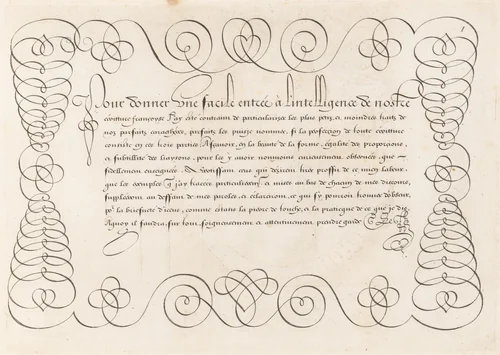 Pour donner une facile entrée à l'intelligence de nostre
escriture françoise J'ay esté contrainct de particularizer les plus petis, et moindres traitz de
noz parfaitz caracthères, parfaitz les puis-je nommer, si la perfection de toute escriture
consiste en ces trois parties. Asçavoir, en la beauté de la forme, égalité des proportions,
et subtillité des liaysons, pour les y avoir neantmoins curieusement observées que
fidellement enseignées. Advertissant ceux qui desirent tirer proffit de ce mien labeur,
que les exemples q̃ j'ay tracez particulierem̃t, et mises au bas de chacun de mes discours,
suppléront au deffaut de mes parolles, et esclairciront, ce qui s'y pourroit trouver d'obscur,
po.r la briefveté d'iceux, comme estans la pierre de touche, et la praticque de ce que je dis
Aquoy il faudra, sur tout, soigneusement, et attentivement, prendre guide
1